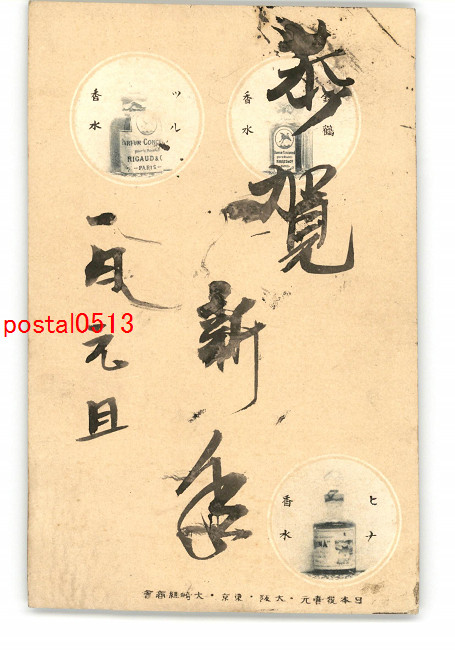 恭賀
新年
一月元旦
鶴
香水
ツル
香水
PARFUM
RIGAUD & C
PARIS
ヒナ
香水
日本發賣元・大阪・東京・大崎組商會
postal0513